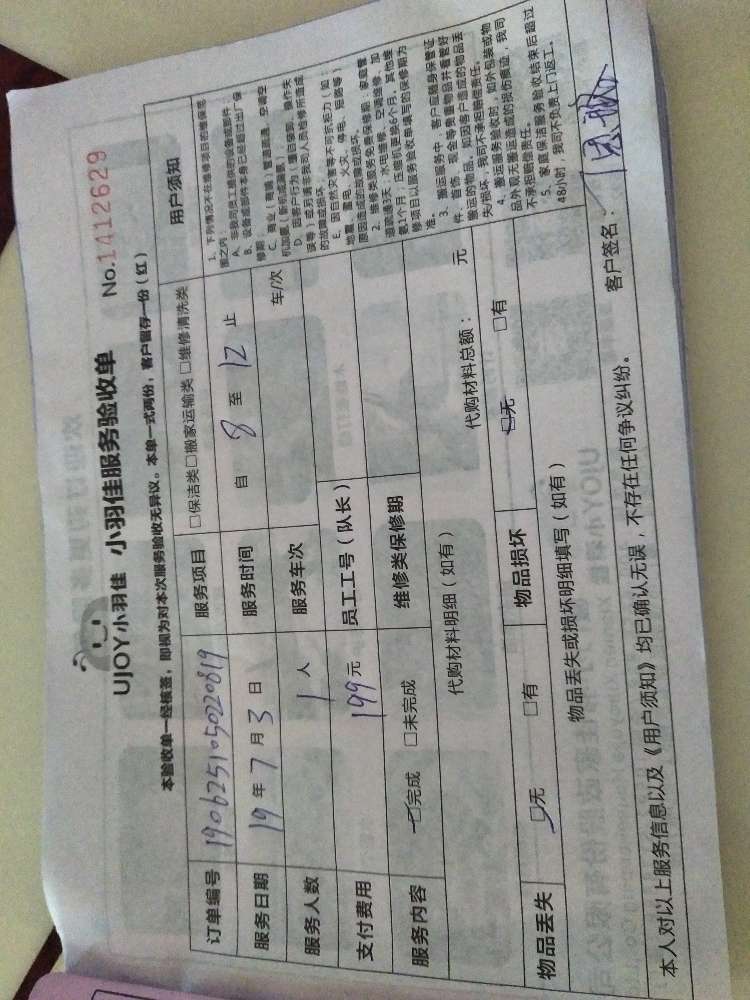 UJOY小羽佳 小羽佳服务验收单 No:1412629
本验收单一经核签，即视为对本次服务验收无异议。本单一式两份，客户留存一份（红）
订单编号 1906251050220819 服务项目 □保洁类□搬家运输类□维修清洗类
服务日期 19年7月3日 服务时间 自 8 至 12 止
服务人数 1 人 服务车次 车/次
支付费用 199元 员工工号（队长）
服务内容 □完成 □未完成 维修类保修期
代购材料明细（如有） 代购材料总额： 元
物品丢失 □无 □有 物品损坏 □无 □有
物品丢失或损坏明细填写（如有）
用户须知
1. 下列情况不在维修项目的维保范
围之内：
A. 非我司员工提供的设备或部件；
B. 设备或部件本身已经超过出厂保
修期；
C. 商业（商铺）管道疏通、空调空
机加氨（新机或两联）
D. 因客户行为：擅自装卸、操作失
误等；或另请非我司人员检修所造成
的故障或损坏。
E. 因自然灾害等不可抗拒力（如：
地震、雷电、火灾、停电、短路等）
原因造成的故障或损坏。
2. 维修类服务免费保修期：家庭管
道疏通3天，水电维修、空调维修、加
氨1个月；压缩机更换6个月，其他维
修项目以服务验收单填写的保修期为
准。
3. 搬运服务中，客户应随身保管证
件、首饰、现金等贵重物品并看管好
搬运的物品。如因客户造成的物品丢
失/损坏，我司不承担赔偿责任。
4. 搬运服务验收时，如外包装或物
品外观无搬运造成的损伤痕迹，我司
不承担赔偿责任。
5. 家庭保洁服务验收结束后超过
48小时，我司不负责上门返工。
本人对以上服务信息以及《用户须知》均已确认无误，不存在任何争议纠纷。 客户签名：